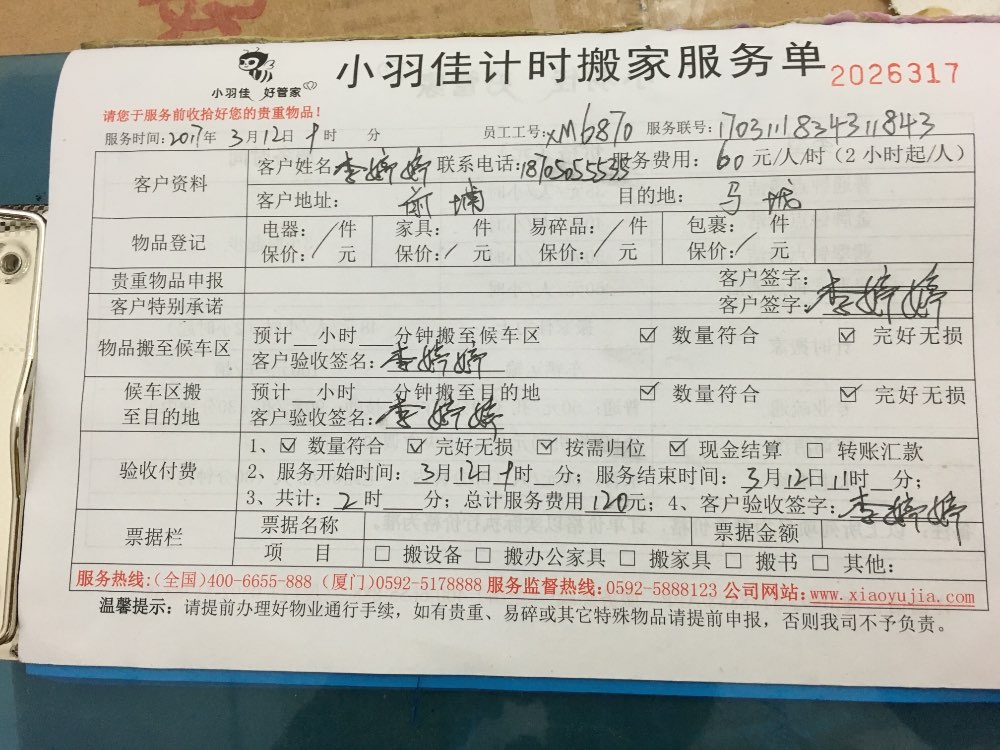 小羽佳计时搬家服务单 2026317
小羽佳 好管家
请您于服务前收拾好您的贵重物品！
服务时间：2017年 3月12日 9时 分 员工工号：XM6870 服务联号：1703111834311843
客户资料 客户姓名：李婷婷 联系电话：18705055535 服务费用：60元/人/时（2小时起/人）
客户地址：前埔 目的地：马垅
物品登记 电器： / 件 家具： 件 易碎品： / 件 包裹： 件
保价： 元 保价：/ 元 保价： 元 保价：/ 元
贵重物品申报 客户签字：
客户特别承诺 客户签字：李婷婷
物品搬至候车区 预计__小时___分钟搬至候车区 ☑ 数量符合 ☑ 完好无损
客户验收签名：李婷婷
候车区搬至目的地 预计__小时___分钟搬至目的地 ☑ 数量符合 ☑ 完好无损
客户验收签名：李婷婷
验收付费 1、☑ 数量符合 ☑ 完好无损 ☑ 按需归位 ☑ 现金结算 □ 转账汇款
2、服务开始时间：3月12日9时__分；服务结束时间：3月12日11时__分；
3、共计：2时___分；总计服务费用120元；4、客户验收签字：李婷婷
票据栏 票据名称 票据金额
项 目 □ 搬设备 □ 搬办公家具 □ 搬家具 □ 搬书 □ 其他：
服务热线：(全国)400-6655-888 (厦门)0592-5178888 服务监督热线：0592-5888123 公司网站：www.xiaoyujia.com
温馨提示：请提前办理好物业通行手续，如有贵重、易碎或其它特殊物品请提前申报，否则我司不予负责。